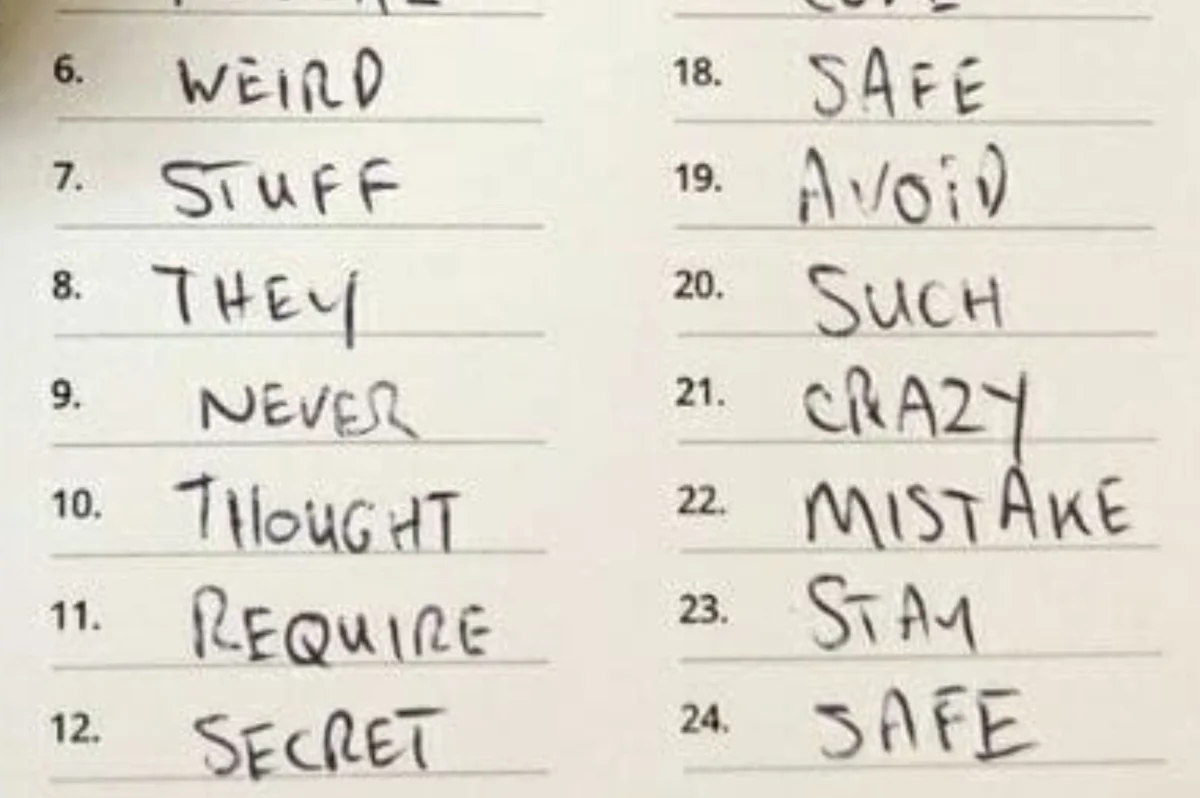 6. WEIRD
7. STUFF
8. THEY
9. NEVER
10. THOUGHT
11. REQUIRE
12. SECRET
18. SAFE
19. AVOID
20. SUCH
21. CRAZY
22. MISTAKE
23. STAY
24. SAFE